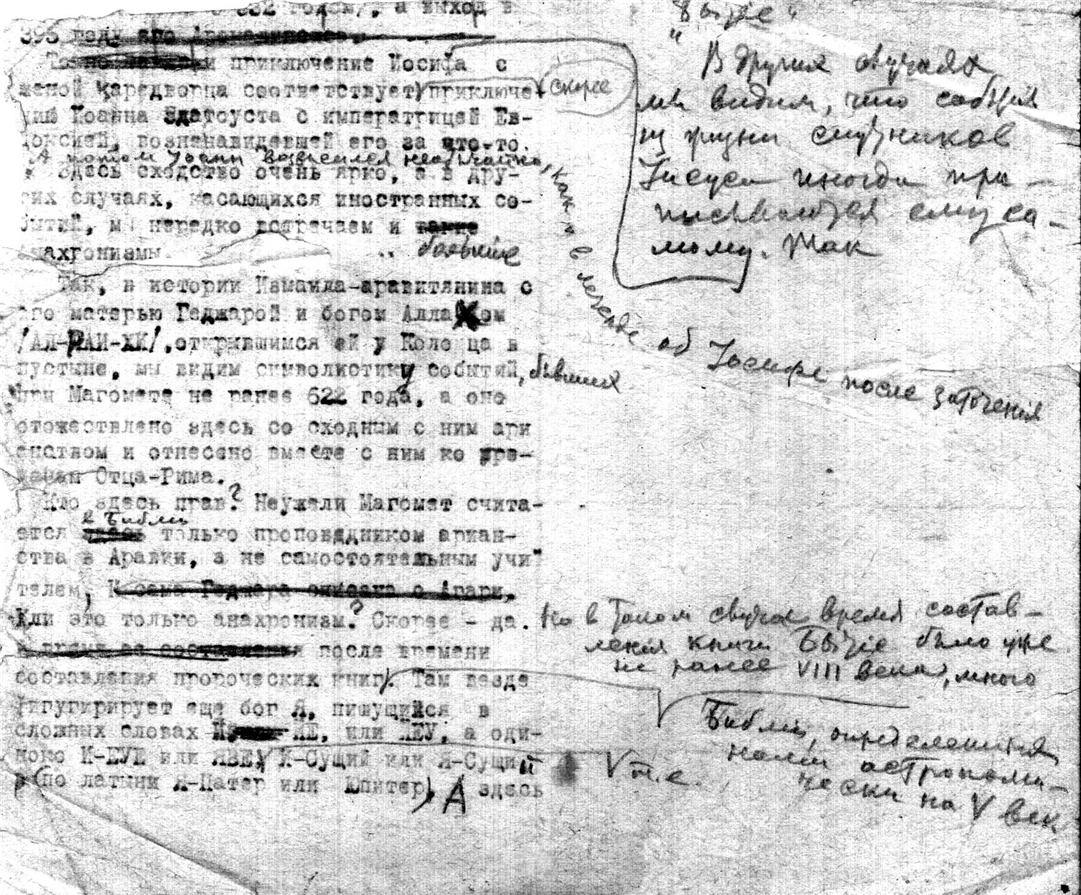 332 а выход в
395 году его
и приключение Иосифа с
женой царедворца соответствует приключе-
скорее
нию Иоанна Златоуста с императрицей Ев-
доксией, возненавидевшей его за что-то.
А потом Иоанн возвысился необычайно, как и в легенде об Иосифе после заточения
Здесь сходство очень ярко, а в дру-
гих случаях, касающихся иностранных со-
бытий, мы нередко встречаем и такие
большие
анахронизмы.
Так, в истории Измаила-аравитянина с
его матерью Геджарой и богом Аллахом
/АЛ-РАИ-ХИ/, открывшимся ей у Колодца в
пустыне, мы видим символистику событий, бывших
при Магомете не ранее 622 года, а оно
отожествлено здесь со сходным с ним ари
анством и отнесено вместе с ним ко вре-
менам Отца-Рима.
Кто здесь прав? Неужели Магомет счита-
в Библии
ется здесь только проповедником ариан-
ства в Аравии, а не самостоятельным учи-
телем, И сама Геджера описана о Агари.
Или это только анахронизм? Скорее - да.
после времени
составления пророческих книг. Там везде
фигурирует еще бог Я, пишущийся в
сложных словах ИЕ, или ИЕУ, а оди-
ноко И-ЕУЕ или ЯВЕ, Я-Сущий или Я-Сущий
(по латыни Я-Патер или Юпитер), А здесь
"Бытие"
В других случаях,
мы видим, что события
из жизни спутников
Иисуса иногда при-
писываются ему са-
мому. Так
Но в таком случае время состав-
ления книги Бытие было уже
не ранее VIII века, много
Библии, определенных
нами астрономи-
чески на V век
т.е.